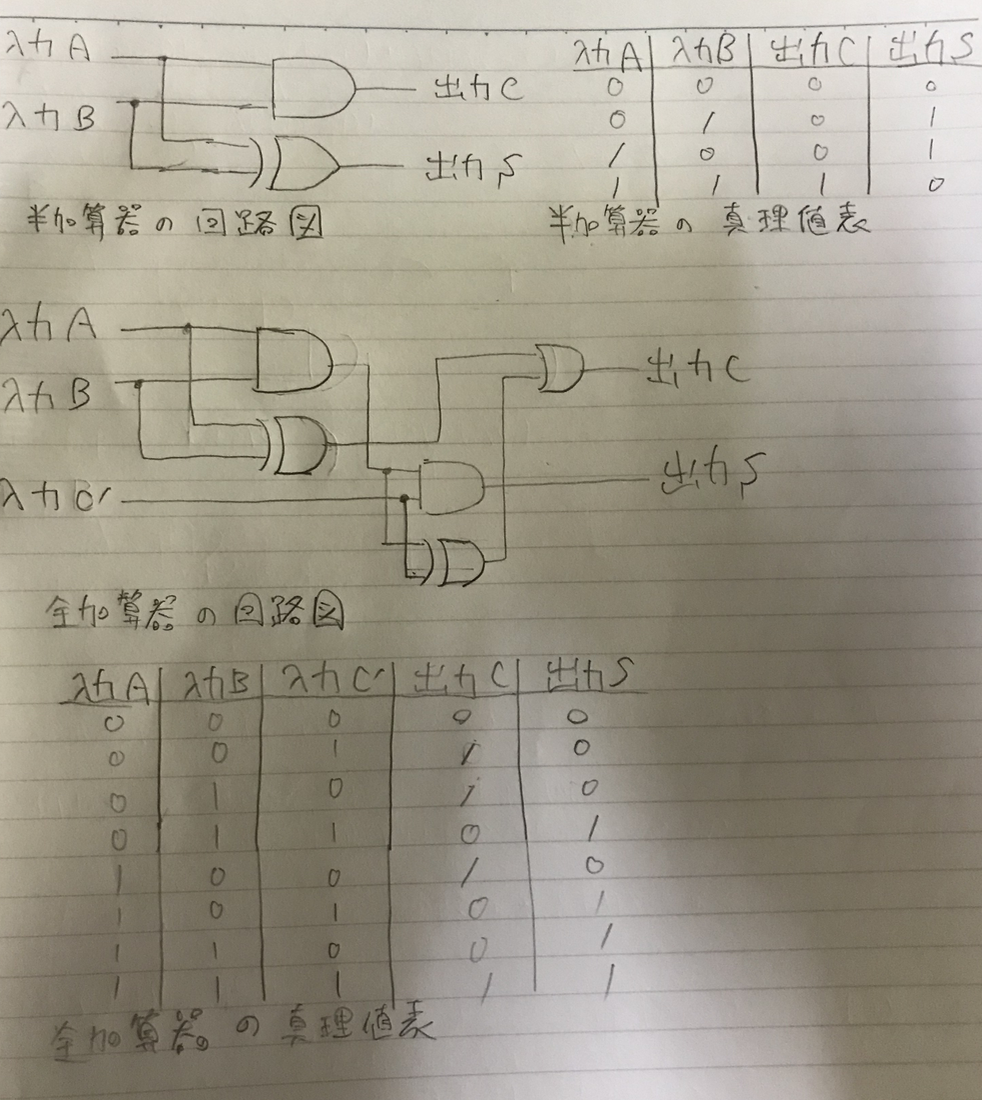 入力A
入力B
出力C
出力S
半加算器の回路図
入力A 入力B 出力C 出力S
0 0 0 0
0 1 0 1
1 0 0 1
1 1 1 0
半加算器の真理値表
入力A
入力B
入力C'
出力C
出力S
全加算器の回路図
入力A 入力B 入力C' 出力C 出力S
0 0 0 0 0
0 0 1 1 0
0 1 0 1 0
0 1 1 0 1
1 0 0 1 0
1 0 1 0 1
1 1 0 0 1
1 1 1 1 1
全加算器の真理値表